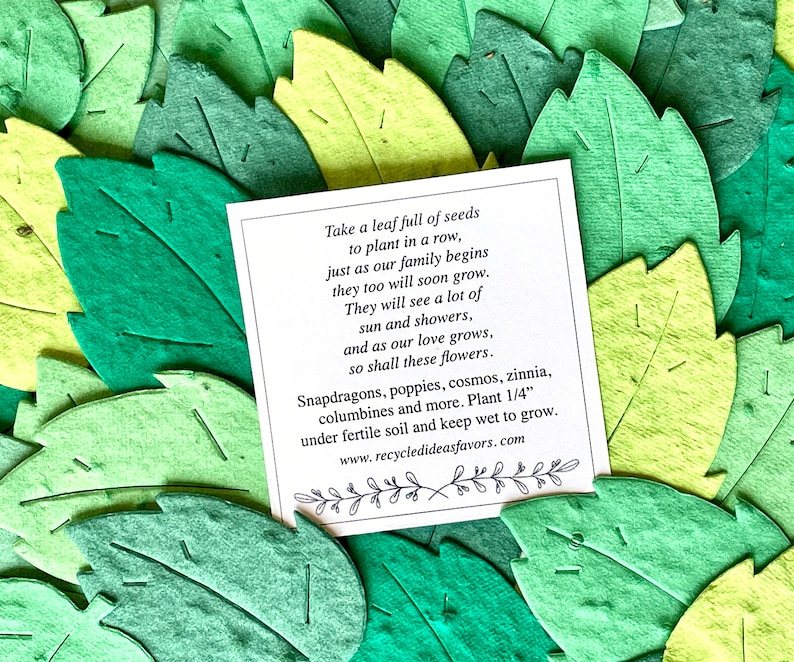 Take a leaf full of seeds
to plant in a row,
just as our family begins
they too will soon grow.
They will see a lot of
sun and showers,
and as our love grows,
so shall these flowers.
Snapdragons, poppies, cosmos, zinnia,
columbines and more. Plant 1/4”
under fertile soil and keep wet to grow.
www.recycledideasfavors.com